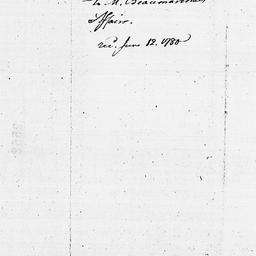 to M. Beaumarchais
Affair.
recd. June 12. 1780